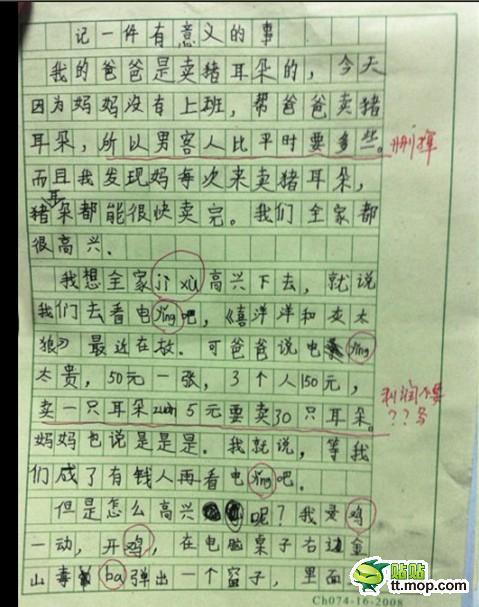 记一件有意义的事
我的爸爸是卖猪耳朵的，今天
因为妈妈没有上班，帮爸爸卖猪
耳朵，所以男客人比平时要多些。
删掉
而且我发现妈每次来卖猪耳朵，
猪耳朵都能很快卖完。我们全家都
很高兴、
我想全家jì xù高兴下去，就说
我们去看电yǐng吧，《喜洋洋和灰太
狼》最近在放。可爸爸说电yǐng
太贵，50元一张，3个人150元，
卖一只耳朵zuàn5元要卖30只耳朵。
利润不要
??务
妈妈也说是是是。我就说，等我
们成了有钱人再看电yǐng吧。
但是怎么高兴呢？我灵鸡
一动，开鸡，在电脑桌子右边金
山毒ba弹出一个窗子，里面
贴贴
tt.mop.com
Ch074-16-2008